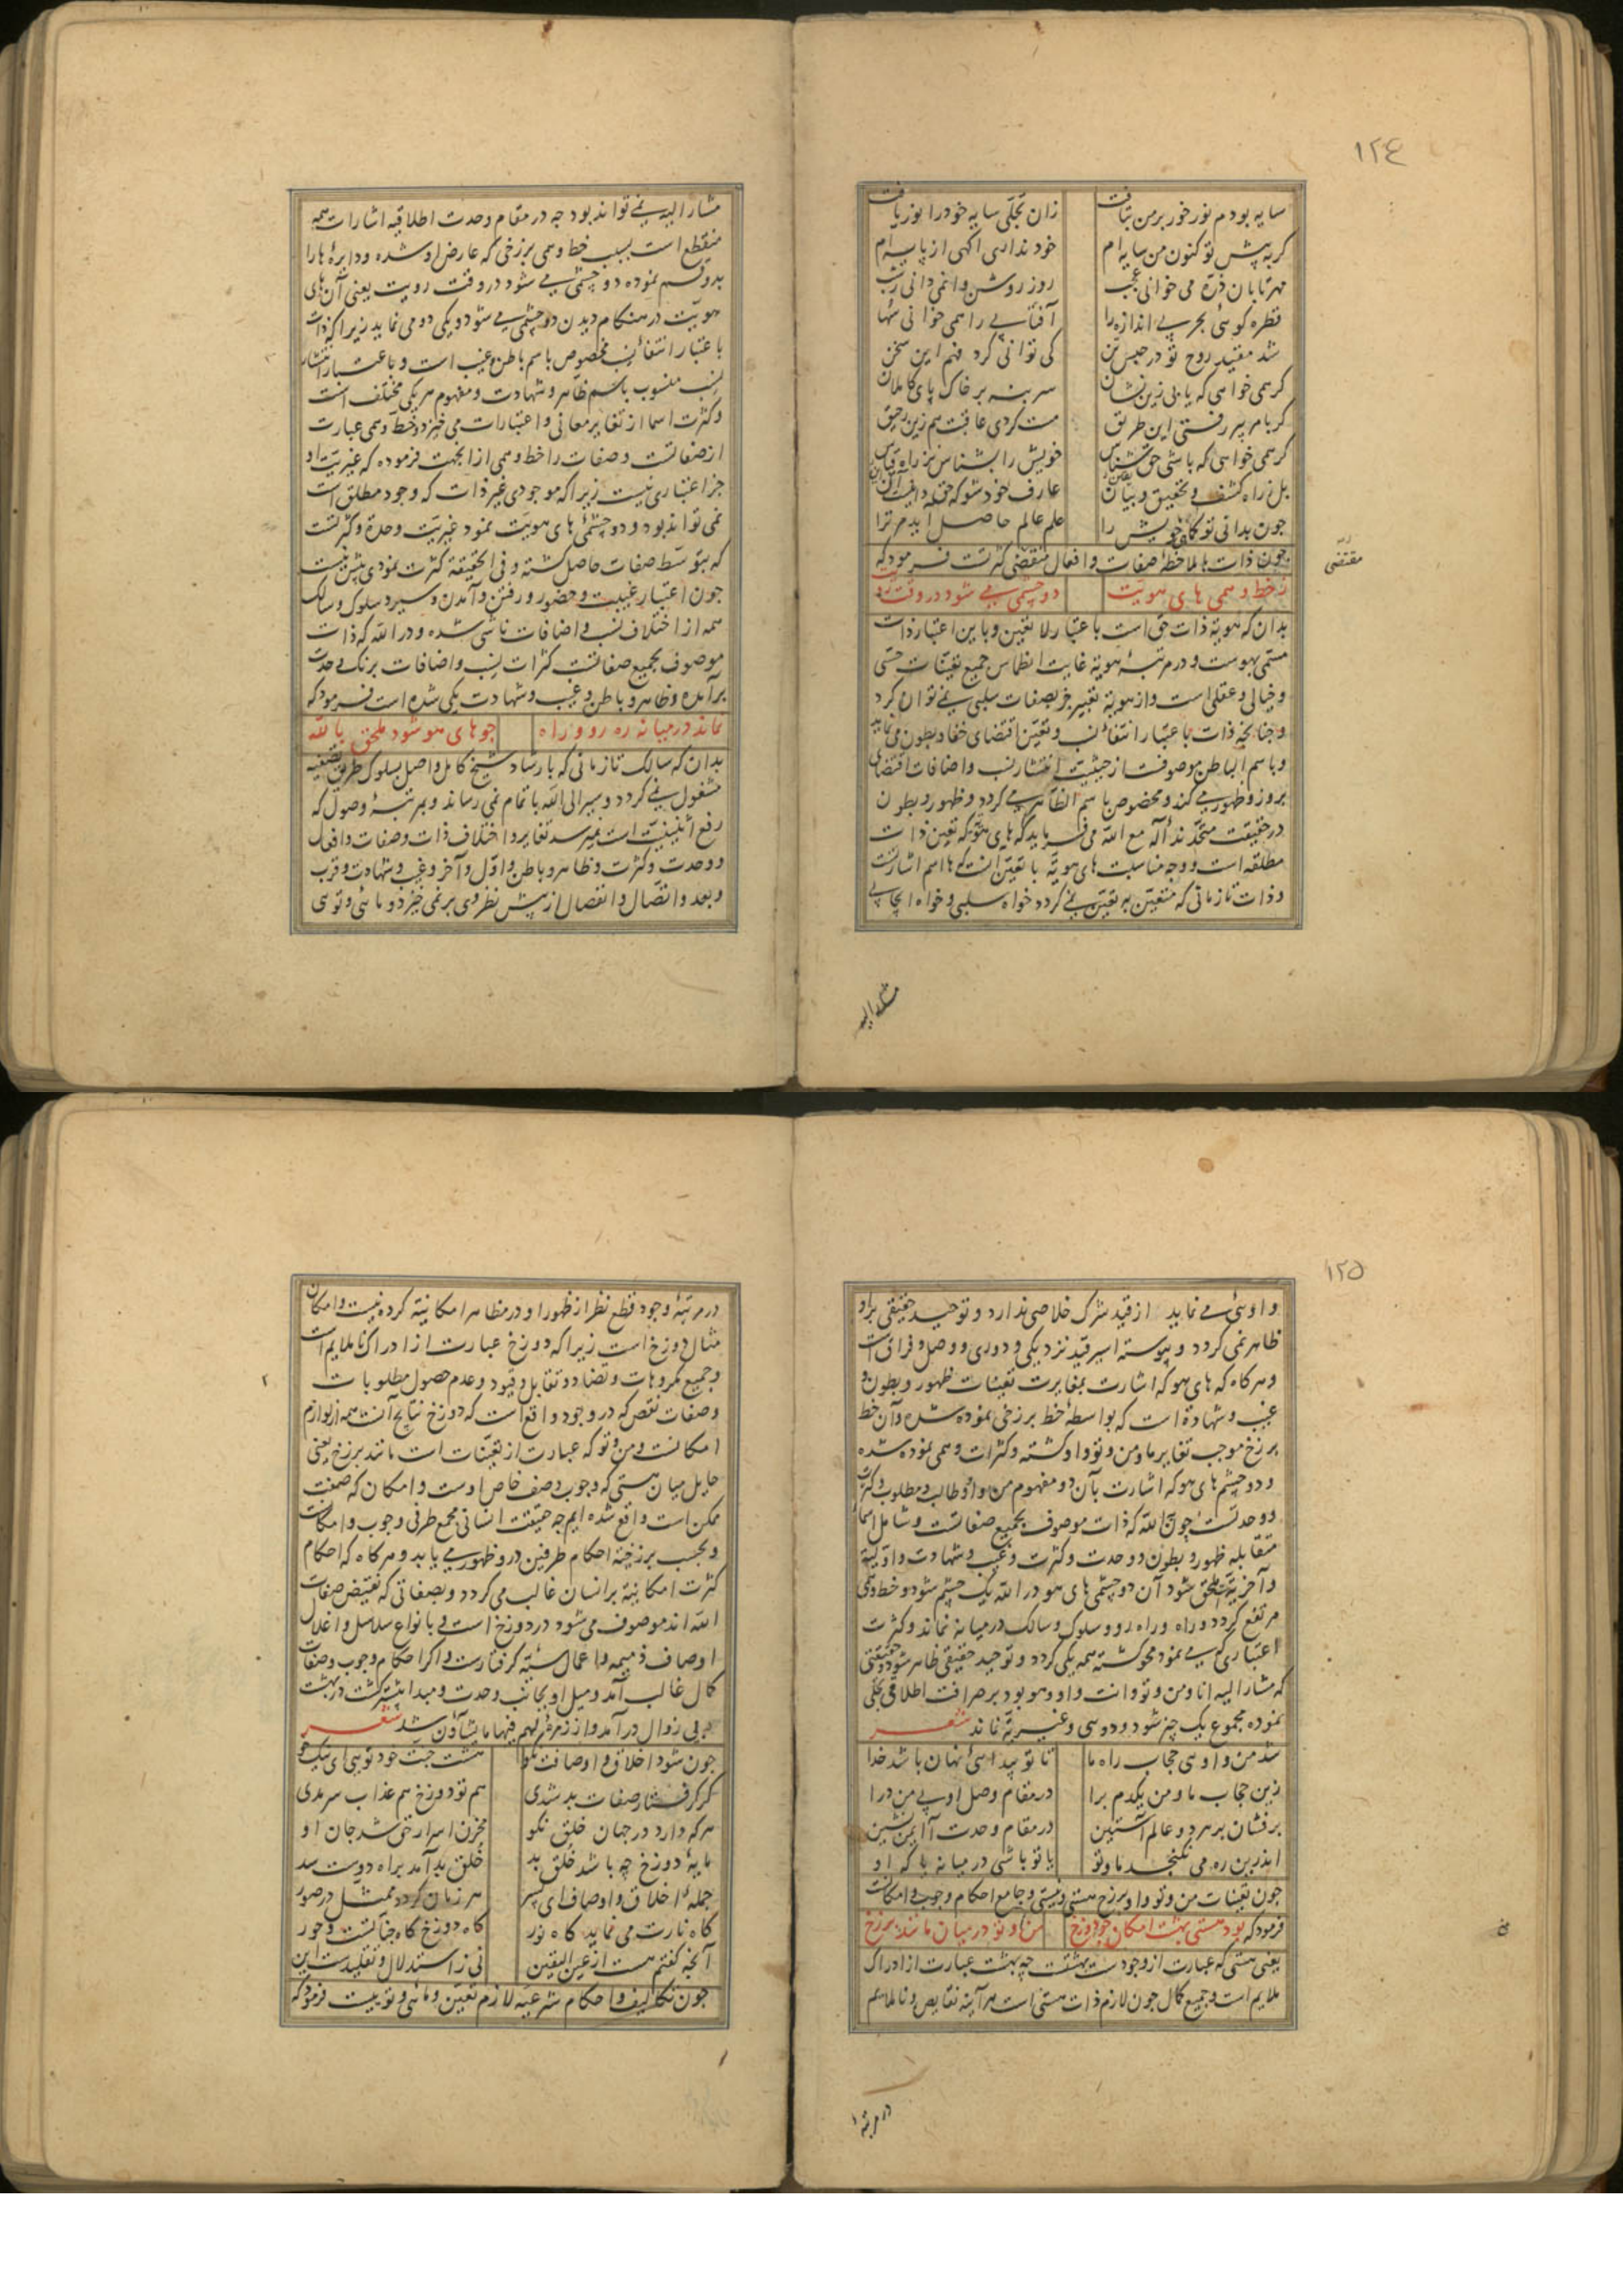 ۱۲٤
سایه بودم نور خور بر من بتافت زان تجلی سایه خود را نور یافت
کر به پیش تو کنون من سایه ام خود نداری اکهی از پایه ام
مهر تابان ذره می خوانی عجب روز روشن را نمی دانی ز شب
قطره کوئی بحر بی اندازه را آفتابی را همی خوانی سها
شد مقید روح تو در حبس تن کی توانی کرد فهم این سخن
کر همی خواهی که یابی زین نشان سر بنه بر خاک پای کاملان
کر بامر پیر رفتی این طریق مست کردی عاقبت هم زین رحیق
کر همی خواهی که باشی حق شناس خویش را بشناس نز راه قیاس
بل ز راه کشف و تحقیق و بیان عارف خود شو که حق دانیست آن
چون بدانی تو کماهی خویش را علم عالم حاصل آید مر ترا
چون ذات بملاحظهٔ صفات و افعال مقتضی کثرتست فرمود که
مقتضی
ز خط وهمی های هویت دو چشمی می شود در وقت رؤیت
بدان که هویة ذات حق است باعتبار لا تعین و باین اعتبار ذات
مسمّی بهوست و در مرتبهٔ هویة غایت انطماس جمیع تعیّنات حسّی
و خیالی و عقلی است و از هویة تعبیر جز بصفات سلبی نمی توان کرد
و چنانچه ذات باعتبار انتفاء نسب و تعیّن اقتضای خفا و بطون می نماید
و باسم الباطن موصوفست از حیثیت انتشار نسب و اضافات اقتضای
بروز و ظهور می کند و مخصوص باسم الظاهر می کردد و ظهور و بطون
در حقیقت متحدند اله مع الله می فرماید که های هو که تعین ذات
مطلقه است و وجه مناسبت های هویة با تعین آنست که ها اسم اشارتست
و ذات تا زمانی که متعین به تعین نمی کردد خواه سلبی و خواه ایجابی
مشار الیه
مشار الیه نمی تواند بود چه در مقام وحدت اطلاقیه اشارات همه
منقطع است بسبب خط وهمی برزخی که عارض او شده و دایرهٔ ها را
بدو قسم نموده دو چشمی می شود در وقت رویت یعنی آن های
هویّت در هنکام دیدن دو چشمی می شود و یکی دو می نماید زیرا که ذات
باعتبار انتفاء نسب مخصوص باسم باطن و غیب است و باعتبار انتشار
نسب منسوب باسم ظاهر و شهادت و مفهوم هر یکی مختلف است
و کثرت اسما از تغایر معانی و اعتبارات می خیزد و خط وهمی عبارت
از صفاتست و صفات را خط وهمی از آنجهت فرموده که غیریت او
جز اعتباری نیست زیرا که موجودی غیر ذات که وجود مطلق است
نمی تواند بود و دو چشمهٔ های هویت نمود غیریت وحدة و کثرتست
که بتوسّط صفات حاصل کشته و فی الحقیقة کثرت نمودی بیش نیست
چون اعتبار غیبت و حضور و رفتن و آمدن و سیر و سلوک و سالک
همه از اختلاف نسب و اضافات ناشی شده و در الله که ذات
موصوف بجمیع صفاتست کثرات نسب و اضافات برنک وحدت
برآمده و ظاهر و باطن و غیب و شهادت یکی شده است فرمود که
نماند در میانه ره رو و راه چو های هو شود ملحق بالله
بدان که سالک تا زمانی که بارشاد شیخ کامل واصل بسلوک طریق تصفیه
مشغول نمی کردد و سیر الی الله باتمام نمی رساند و بمرتبهٔ وصول که
رفع اثنینیّت است نمیرسد تغایر و اختلاف ذات و صفات و افعال
و وحدت و کثرت و ظاهر و باطن و اوّل و آخر و غیب و شهادت و قرب
و بعد و اتّصال و انفصال از پیش نظر وی بر نمی خیزد و مائی و توئی
۱۲۵
و اوئی می نماید از قید شرک خلاصی ندارد و توحید حقیقی بر او
ظاهر نمی کردد و پیوسته اسیر قید نزدیکی و دوری و وصل و فراق است
و هر کاه که های هو که اشارت بمغایرت تعینات ظهور و بطون و
غیب و شهادة است که بواسطهٔ خط برزخی نموده شده و آن خط
برزخ موجب تغایر ما و من و تو و او کشته و کثرات وهمی نموده شده
و دو چشم های هو که اشارت بآن دو مفهوم من و او و طالب و مطلوب و کثرت
و وحدتست چون بالله که ذات موصوف بجمیع صفاتست و شامل اسماء
متقابله ظهور و بطون و وحدت و کثرت و غیب و شهادت و اولیة
و آخریة ملحق شود آن دو چشمی های هو در الله یک چشم شود و خط وهمی
مرتفع کردد و راه و راه رو و سلوک و سالک در میانه نماند و کثرت
اعتباری بی نمود محو کشته همه یکی کردد و توحید حقیقی ظاهر شود و حقیقتی
که مشار الیه انا و من و تو و انت و او و هو بود بر صرافت اطلاقی تجلی
نموده مجموع یک چیز شود و دوئی و غیریة نماند شعر
شد من و اوئی حجاب راه ما تا تو پیدائی نهان باشد خدا
زین حجاب ما و من یکدم برآ در مقام وصل او بی من درآ
برفشان بر هر دو عالم آستین در مقام وحدت آ ایمن نشین
اندرین ره می نکنجد ما و تو یا تو باشی در میانه یا که او
چون تعینات من و تو و او برزخ هستی و نیستی و جامع احکام وجوب و امکانست
فرمود که بود هستی بهشت امکان چو دوزخ من و تو در میان مانند برزخ
یعنی هستی که عبارت از وجودست بهشتست چه بهشت عبارت از ادراک
ملایم است و جمیع کمال چون لازم ذات هستی است هر آینه نقایص و ناملایم
در مرتبهٔ
در مرتبهٔ وجود قطع نظر از ظهور او در مظاهر امکانیة کرده نیست و امکان
مثال دوزخ است زیرا که دوزخ عبارت از ادراک ناملایم است
و جمیع مکروهات و تضاد و تقابل و قیود و عدم حصول مطلوبات
و صفات نقص که در وجود واقع است که دوزخ نتایج آنست همه از لوازم
امکانست و من و تو که عبارت از تعیّنات است مانند برزخ یعنی
حایل میان هستی که وجوب وصف خاص اوست و امکان که صفت
ممکن است واقع شده ایم چه حقیقت انسانی مجمع طرفی وجوب و امکانست
و بحسب برزخیّة احکام طرفین درو ظهور می یابد و هر کاه که احکام
کثرت امکانیة بر انسان غالب می کردد و بصفاتی که نقیض صفات
الله اند موصوف می شود در دوزخ است و بانواع سلاسل و اغلال
اوصاف ذمیمه و اعمال سیّئه کرفتارست و اکر احکام وجوب و صفات
کمال غالب آمد و میل او بجانب وحدت و مبدا بیشتر کشت در بهشت
بی زوال درآمد و از زمرهٔ لهم فیها ما یشاؤن شد شعر
چون شود اخلاق و اوصافت نکو هشت جنت خود توئی ای نیک خو
کر کرفتار صفات بد شدی هم تو دوزخ هم عذاب سرمدی
هر که دارد در جهان خلق نکو مخزن اسرار حق شد جان او
مایهٔ دوزخ چه باشد خلق بد خلق بد آمد براه دوست سد
جملهٔ اخلاق و اوصاف ای پسر هر زمان کردد ممثل در صور
کاه نارت می نماید کاه نور کاه دوزخ کاه جناتست و حور
آنچه کفتم هست از عین الیقین نی ز استدلال و تقلیدست این
چون تکالیف و احکام شرعیه لازم تعیّن و مائی و توئیست فرمود که